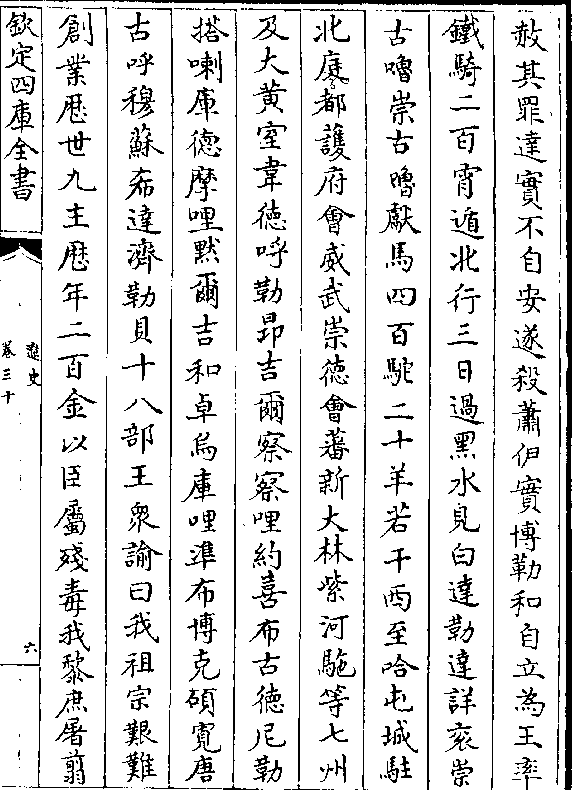 赦其罪達實不自安遂殺蕭伊實博勒和自立為王率
鐵騎二百宵遁北行三日過黑水見白達勒達詳衮崇
古嚕崇古嚕獻馬四百駝二十羊若干西至哈屯城駐
北庭都護府會威武崇德會蕃新大林紫河駞等七州
及大黃室韋德呼勒昻吉爾察察哩約喜布古德尼勒
搭喇庫德摩哩默爾吉和卓烏庫哩準布博克碩寛唐
古呼穆蘇布達濟勒貝十八部王衆諭曰我祖宗艱難
創業歴世九主歴年二百金以臣屬殘毒我黎庶屠翦
欽定四庫全書
遼史
卷三十
六